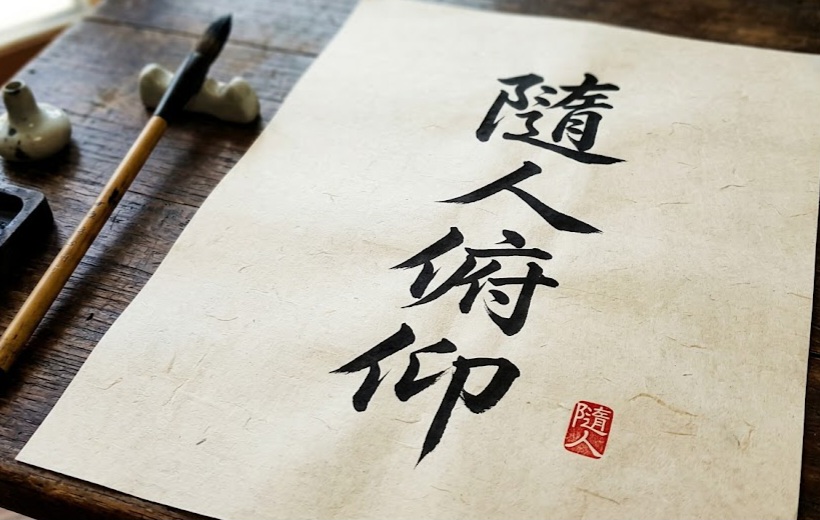 隨人俯仰
隨人